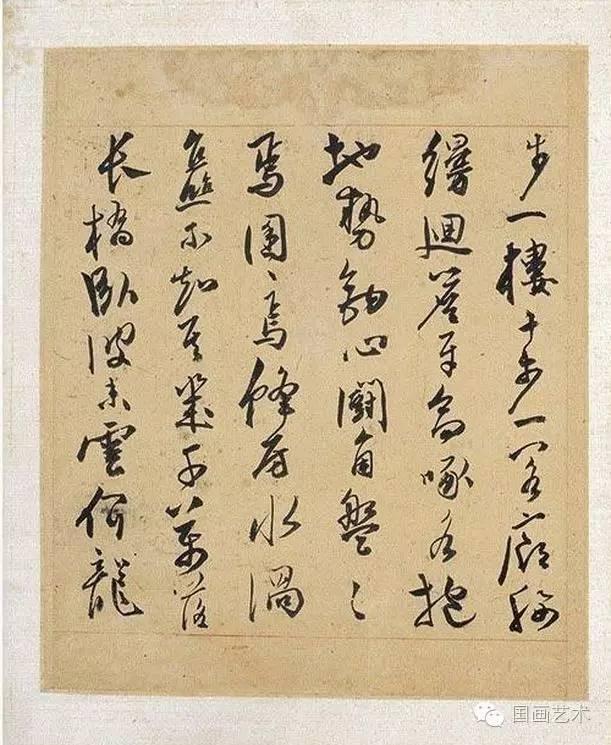 步一樓十步一閣廊腰
縵迴簷牙高啄各抱
地勢鈎心鬪角盤〻
焉囷〻焉蜂房水渦
矗不知其幾千萬落
長橋臥波未雲何龍
国画艺术